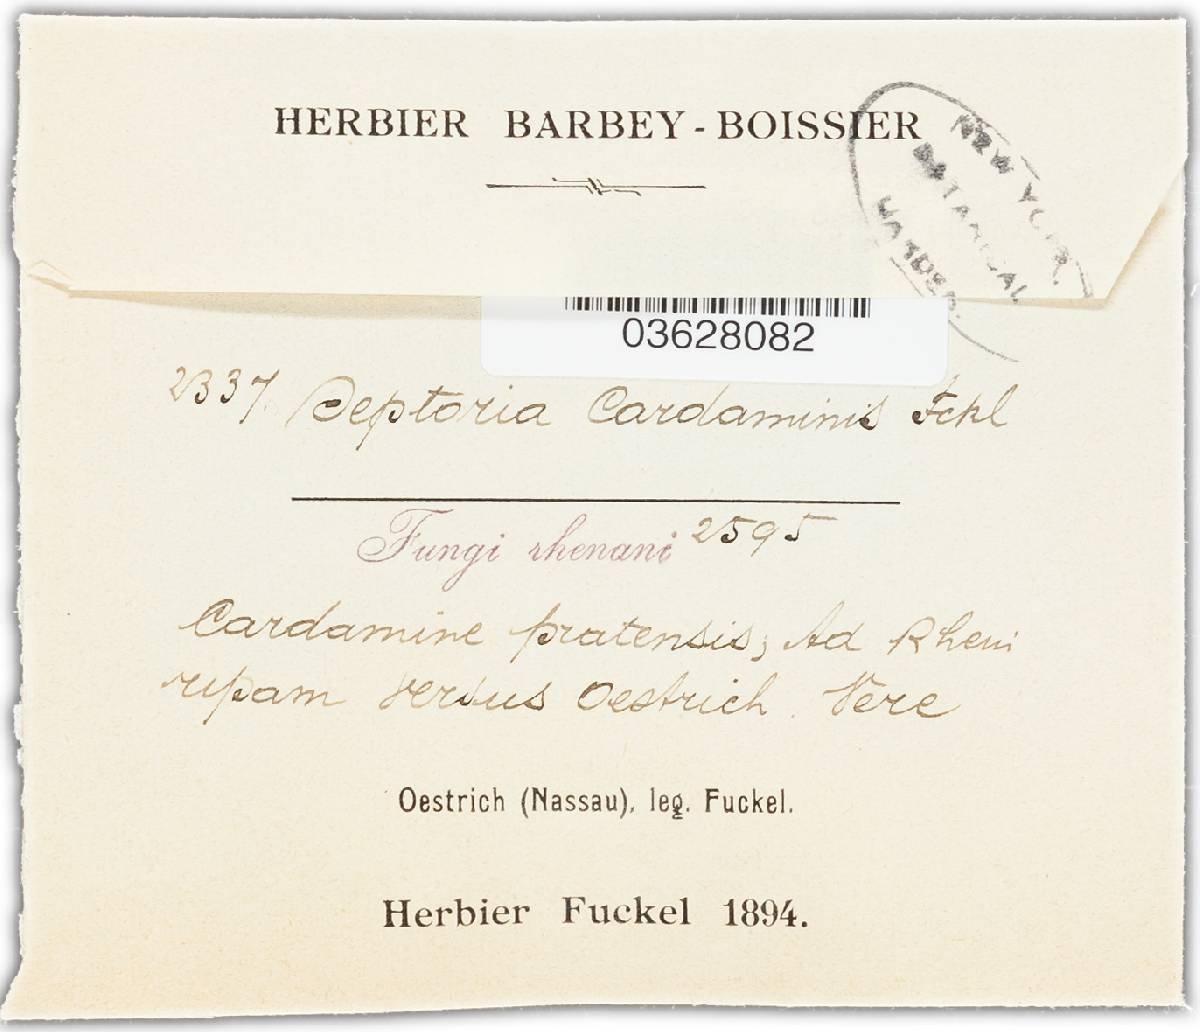 HERBIER BARBEY-BOISSIER
NEW YORK
BOTANICAL
GARDEN.
03628082
2337 Septoria Cardaminis Fckl
Fungi rhenani 2595
Cardamine pratensis; Ad Rheni
ripam versus Oestrich. Vere
Oestrich (Nassau), leg. Fuckel.
Herbier Fuckel 1894.